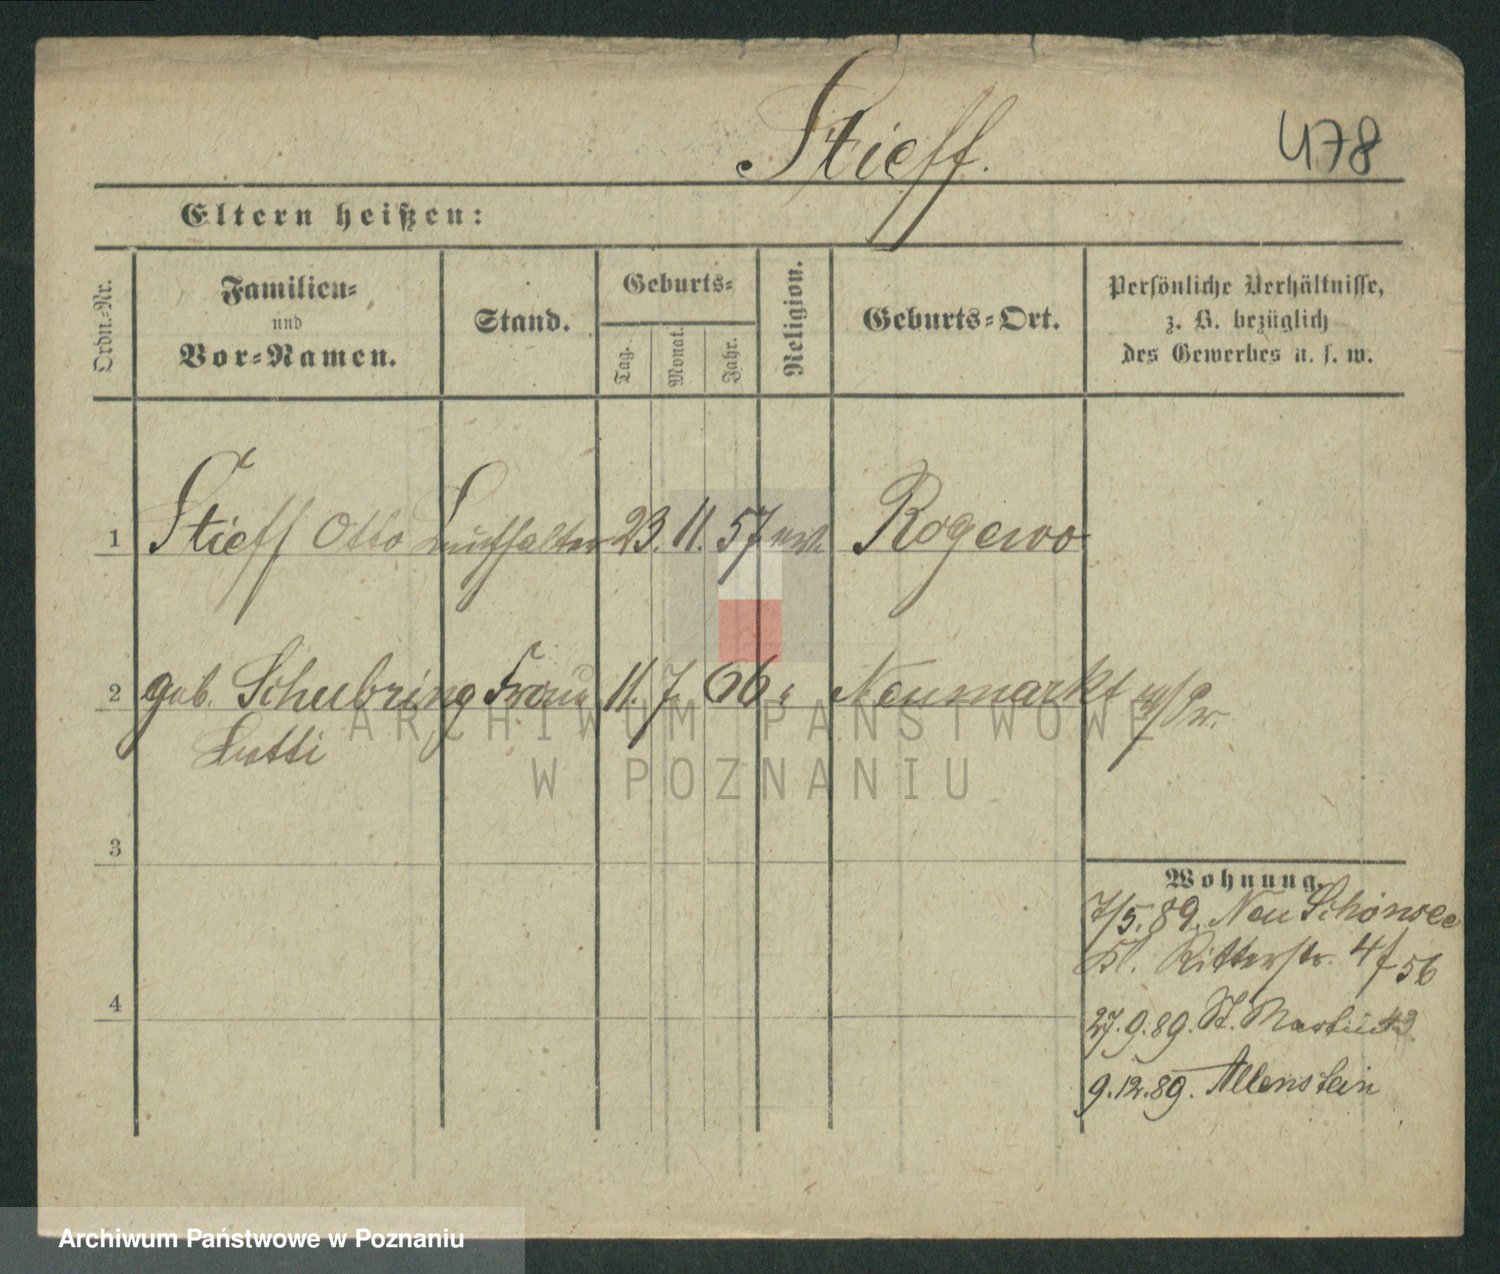 Stieff.
478
Eltern heißen:
Ordn.-Nr.
Familien-
und
Vor-Namen.
Stand.
Geburts-
Tag.
Monat.
Jahr.
Religion.
Geburts-Ort.
Persönliche Verhältnisse,
z. B. bezüglich
des Gewerbes u. s. w.
1 Stieff Otto 23. 11. 57 Rogewo
2 geb. Schubring Frau 11. 7. 66 " Neumarkt w/Pr.
3
4
Wohnung.
7/5. 89. Neu Schönsee
Kl. Ritterstr. 4
27. 9. 89. St. Martin 43
9. 12. 89. Allenstein
ARCHIWUM PAŃSTWOWE
W POZNANIU
Archiwum Państwowe w Poznaniu